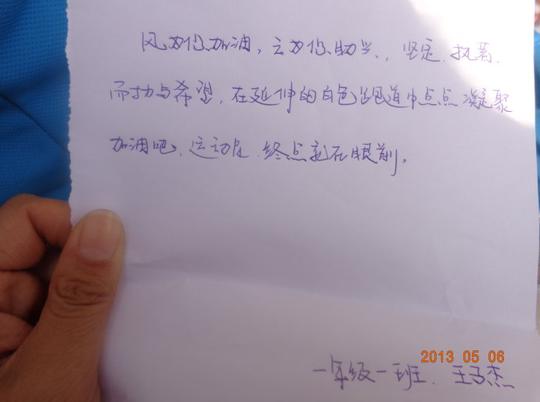 风为你加油，云为你助兴，坚定、执着、
而力与希望，在延伸的白色跑道中点点凝聚
加油吧、运动员、终点就在眼前。
2013 05 06
一年级一班、王子杰